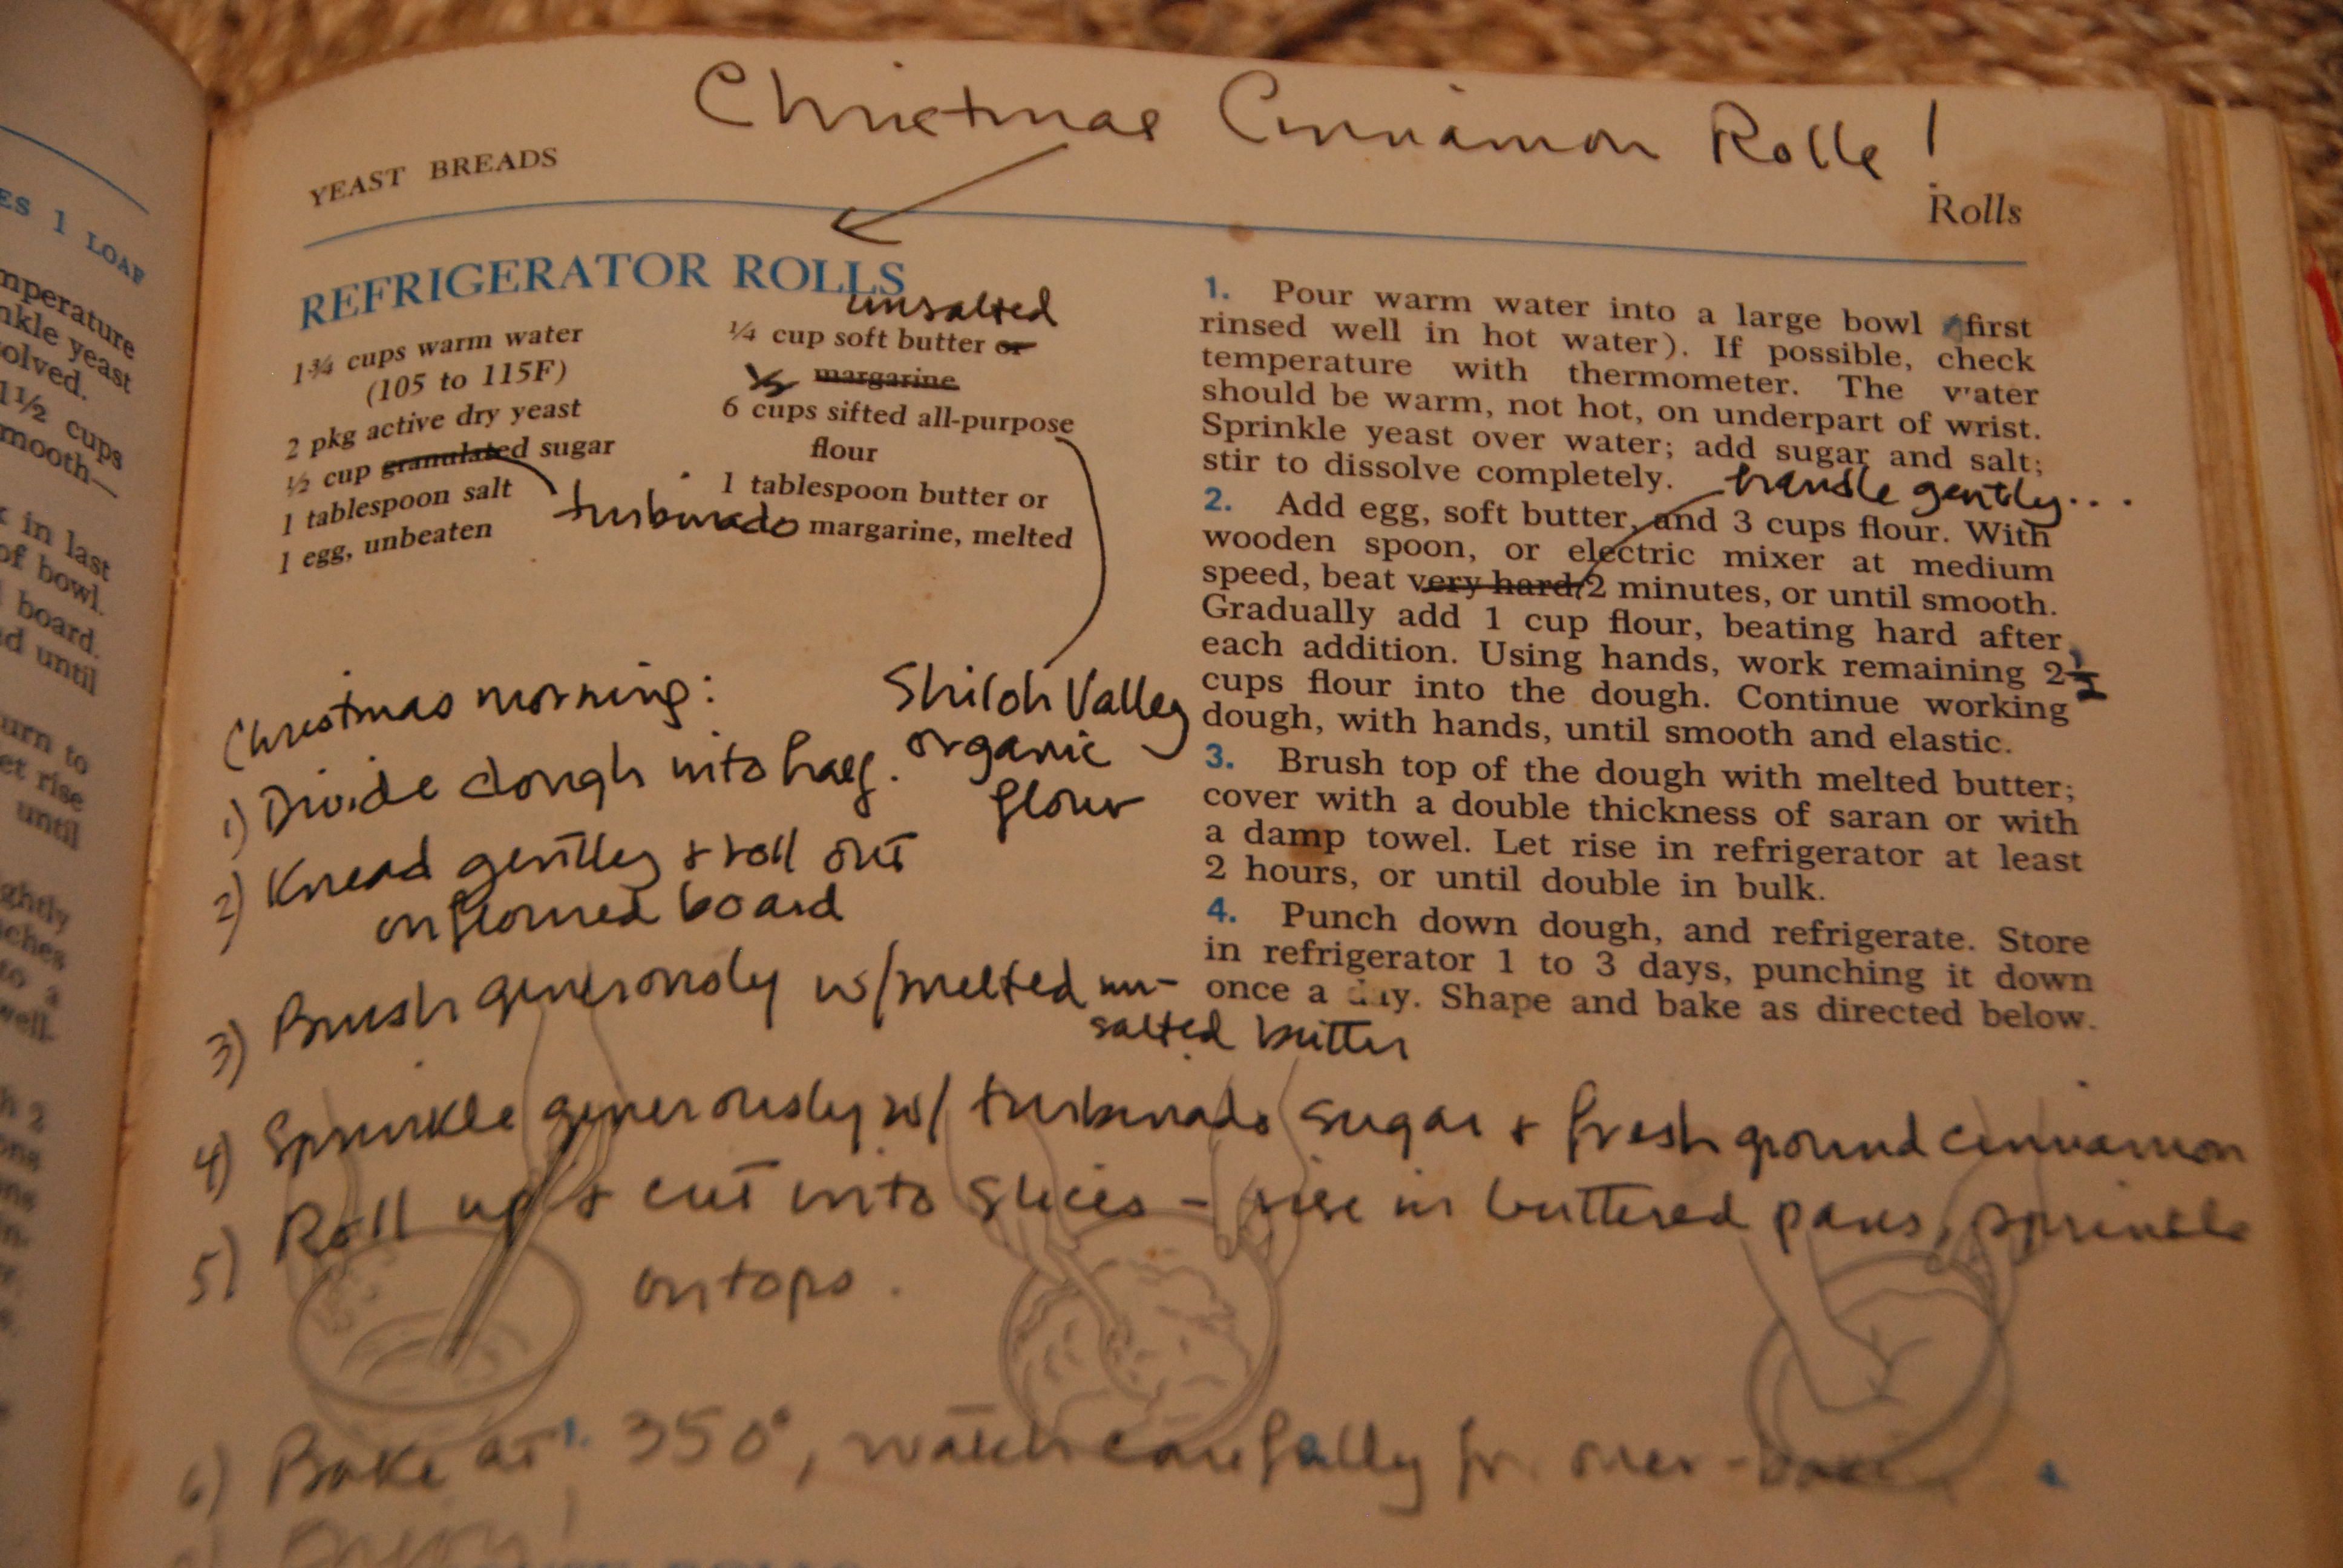 Christmas Cinnamon Rolls!
YEAST BREADS
Rolls
REFRIGERATOR ROLLS
1¾ cups warm water
(105 to 115F)
2 pkg active dry yeast
½ cup granulated sugar
1 tablespoon salt
1 egg, unbeaten
turbinado
unsalted
¼ cup soft butter or
margarine
6 cups sifted all-purpose
flour
1 tablespoon butter or
margarine, melted
Shiloh Valley
organic
flour
1. Pour warm water into a large bowl (first
rinsed well in hot water). If possible, check
temperature with thermometer. The water
should be warm, not hot, on underpart of wrist.
Sprinkle yeast over water; add sugar and salt;
stir to dissolve completely.
gently...
2. Add egg, soft butter, and 3 cups flour. With
wooden spoon, or electric mixer at medium
speed, beat very hard 2 minutes, or until smooth.
Gradually add 1 cup flour, beating hard after
each addition. Using hands, work remaining 2
cups flour into the dough. Continue working
dough, with hands, until smooth and elastic.
3. Brush top of the dough with melted butter;
cover with a double thickness of saran or with
a damp towel. Let rise in refrigerator at least
2 hours, or until double in bulk.
4. Punch down dough, and refrigerate. Store
in refrigerator 1 to 3 days, punching it down
once a day. Shape and bake as directed below.
Christmas morning:
1) Divide dough into half.
2) Knead gently & roll out
on floured board
3) Brush generously w/ melted un-
salted butter
4) Sprinkle generously w/ turbinado sugar & fresh ground cinnamon
5) Roll up & cut into slices - rise in buttered pans, sprinkle
on tops.
6) Bake at 350°, watch carefully for over-
1.
4.
ES 1 LOAF
mperature
nkle yeast
olved.
1½ cups
mooth—
in last
of bowl.
board.
until
urn to
et rise
until
ghtly
ches
to a
well-